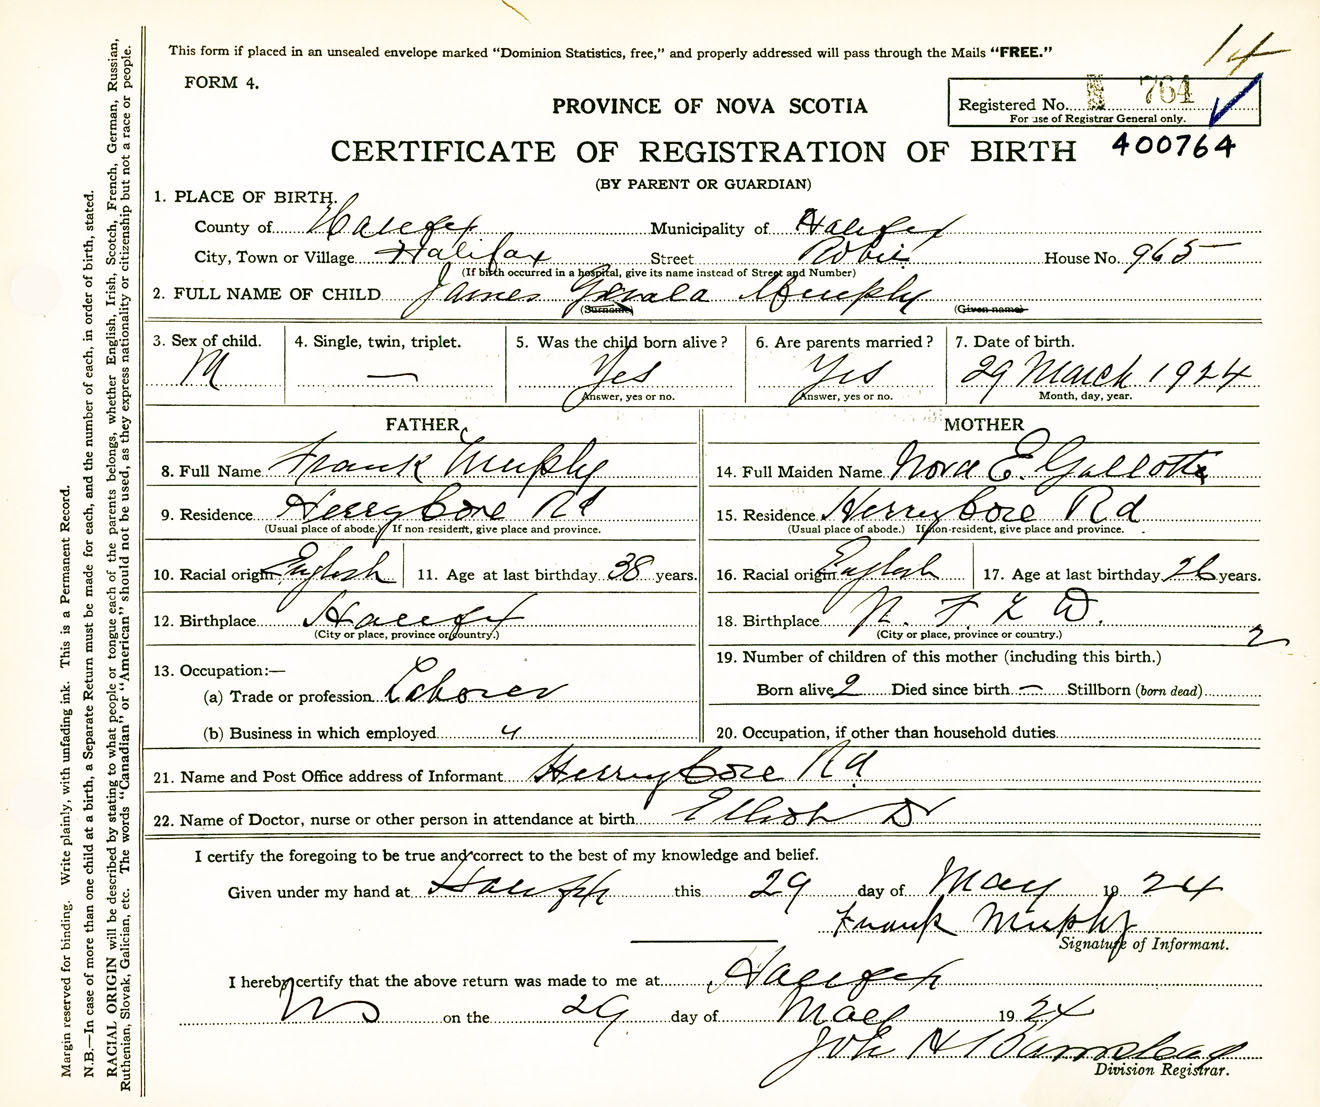 This form if placed in an unsealed envelope marked “Dominion Statistics, free,” and properly addressed will pass through the Mails “FREE.”
14
FORM 4.
Registered No. 764
For use of Registrar General only.
PROVINCE OF NOVA SCOTIA
CERTIFICATE OF REGISTRATION OF BIRTH 400764
(BY PARENT OR GUARDIAN)
1. PLACE OF BIRTH.
County of Halifax Municipality of Halifax
City, Town or Village Halifax Street Robie House No. 965
(If birth occurred in a hospital, give its name instead of Street and Number)
2. FULL NAME OF CHILD James Gerald Murphy
(Surname) (Given name)
3. Sex of child. 4. Single, twin, triplet. 5. Was the child born alive? 6. Are parents married? 7. Date of birth.
M — Yes Yes 29 March 1924
Answer, yes or no. Answer, yes or no. Month, day, year.
FATHER MOTHER
8. Full Name Frank Murphy 14. Full Maiden Name Nora E.
9. Residence Herring Cove Rd 15. Residence Herring Cove Rd
(Usual place of abode.) If non resident, give place and province. (Usual place of abode.) If non-resident, give place and province.
10. Racial origin English 11. Age at last birthday 38 years. 16. Racial origin English 17. Age at last birthday 26 years.
12. Birthplace Halifax 18. Birthplace N. F. L D.
(City or place, province or country.) (City or place, province or country.)
2
13. Occupation:— 19. Number of children of this mother (including this birth.)
(a) Trade or profession Laborer Born alive 2 Died since birth — Stillborn (born dead)
(b) Business in which employed " 20. Occupation, if other than household duties
21. Name and Post Office address of Informant Herring Cove Rd
22. Name of Doctor, nurse or other person in attendance at birth Elliot Dr
I certify the foregoing to be true and correct to the best of my knowledge and belief.
Given under my hand at Halifax this 29 day of May 1924
Frank Murphy
Signature of Informant.
I hereby certify that the above return was made to me at Halifax
NS on the 29 day of May 1924
John H Barnstead
Division Registrar.
Margin reserved for binding. Write plainly, with unfading ink. This is a Permanent Record.
N.B.—In case of more than one child at a birth, a Separate Return must be made for each, and the number of each, in order of birth, stated.
RACIAL ORIGIN will be described by stating to what people or tongue each of the parents belongs, whether English, Irish, Scotch, French, German, Russian,
Ruthenian, Slovak, Galician, etc. The words “Canadian” or “American” should not be used, as they express nationality or citizenship but not a race or people.